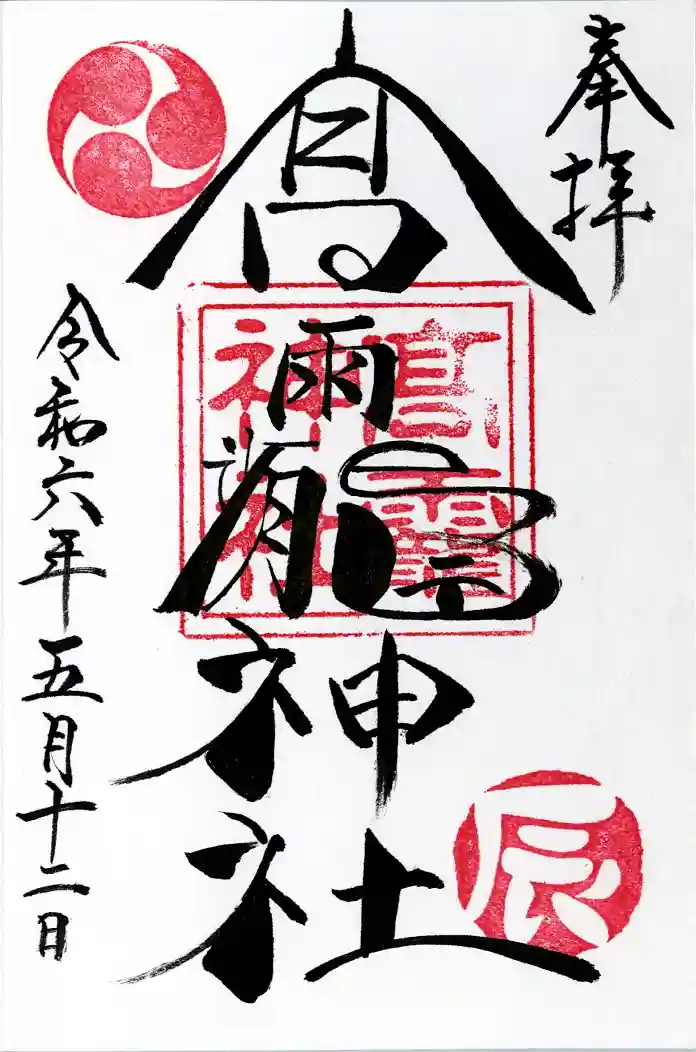 奉拝
髙龗神社
高龗
神社
辰
令和六年五月十二日